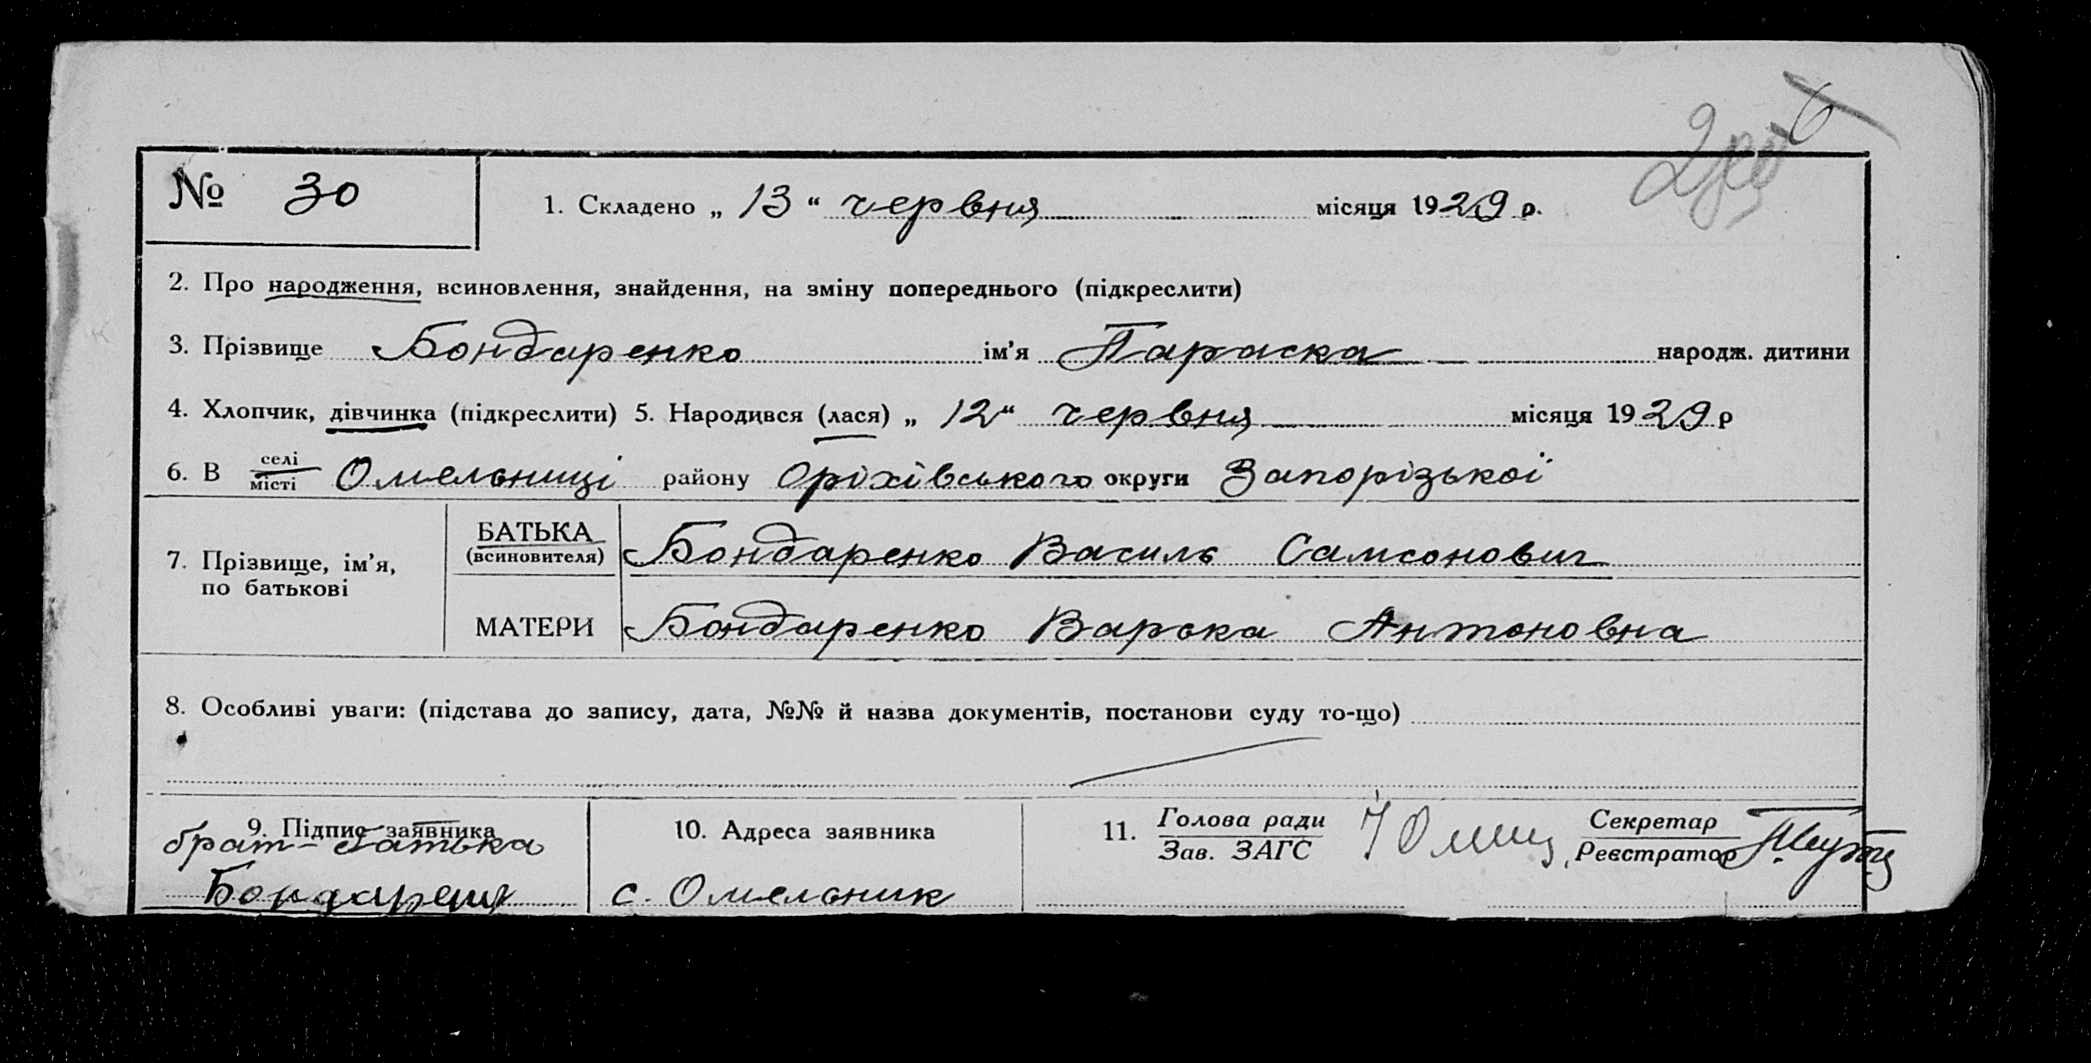 № 30
1. Складено „ 13 “ червня місяця 1929 р.
2. Про народження, всиновлення, знайдення, на зміну попереднього (підкреслити)
3. Прізвище Бондаренко ім’я Параска народж. дитини
4. Хлопчик, дівчинка (підкреслити) 5. Народився (лася) „ 12 “ червня місяця 1929 р
6. В селі місті Омельниці району Оріхівського округи Запорізької
7. Прізвище, ім’я, по батькові
БАТЬКА (всиновителя) Бондаренко Василь Самсонович
МАТЕРИ Бондаренко Варька Антоновна
8. Особливі уваги: (підстава до запису, дата, №№ й назва документів, постанови суду то-що)
9. Підпис заявника
брат-батька
10. Адреса заявника
с. Омельник
11. Голова ради
Зав. ЗАГС
Секретар
Реєстратор